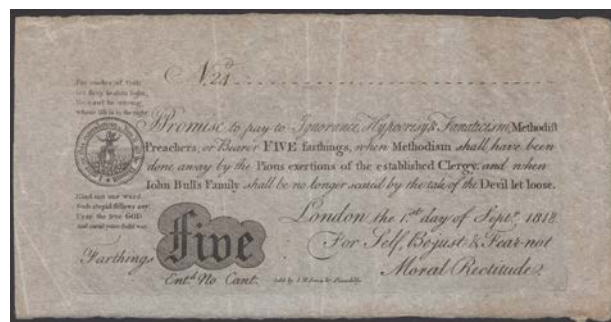 N.º 2d
For modes of Faith
let fiery zealots fight,
His can't be wrong,
whose life is in the right
Promise to pay to Ignorance, Hypocrisy & Fanaticism, Methodist
Preachers, or Bearer FIVE farthings, when Methodism shall have been
done away by the Pious exertions of the established Clergy, and when
John Bulls Family shall be no longer scared by the tale of the Devil let loose.
London the 1.st day of Sept.r 1818
For Self, Bejust & Fear-not
Moral Rectitude.
Farthings Five
Ent.d No Cant.